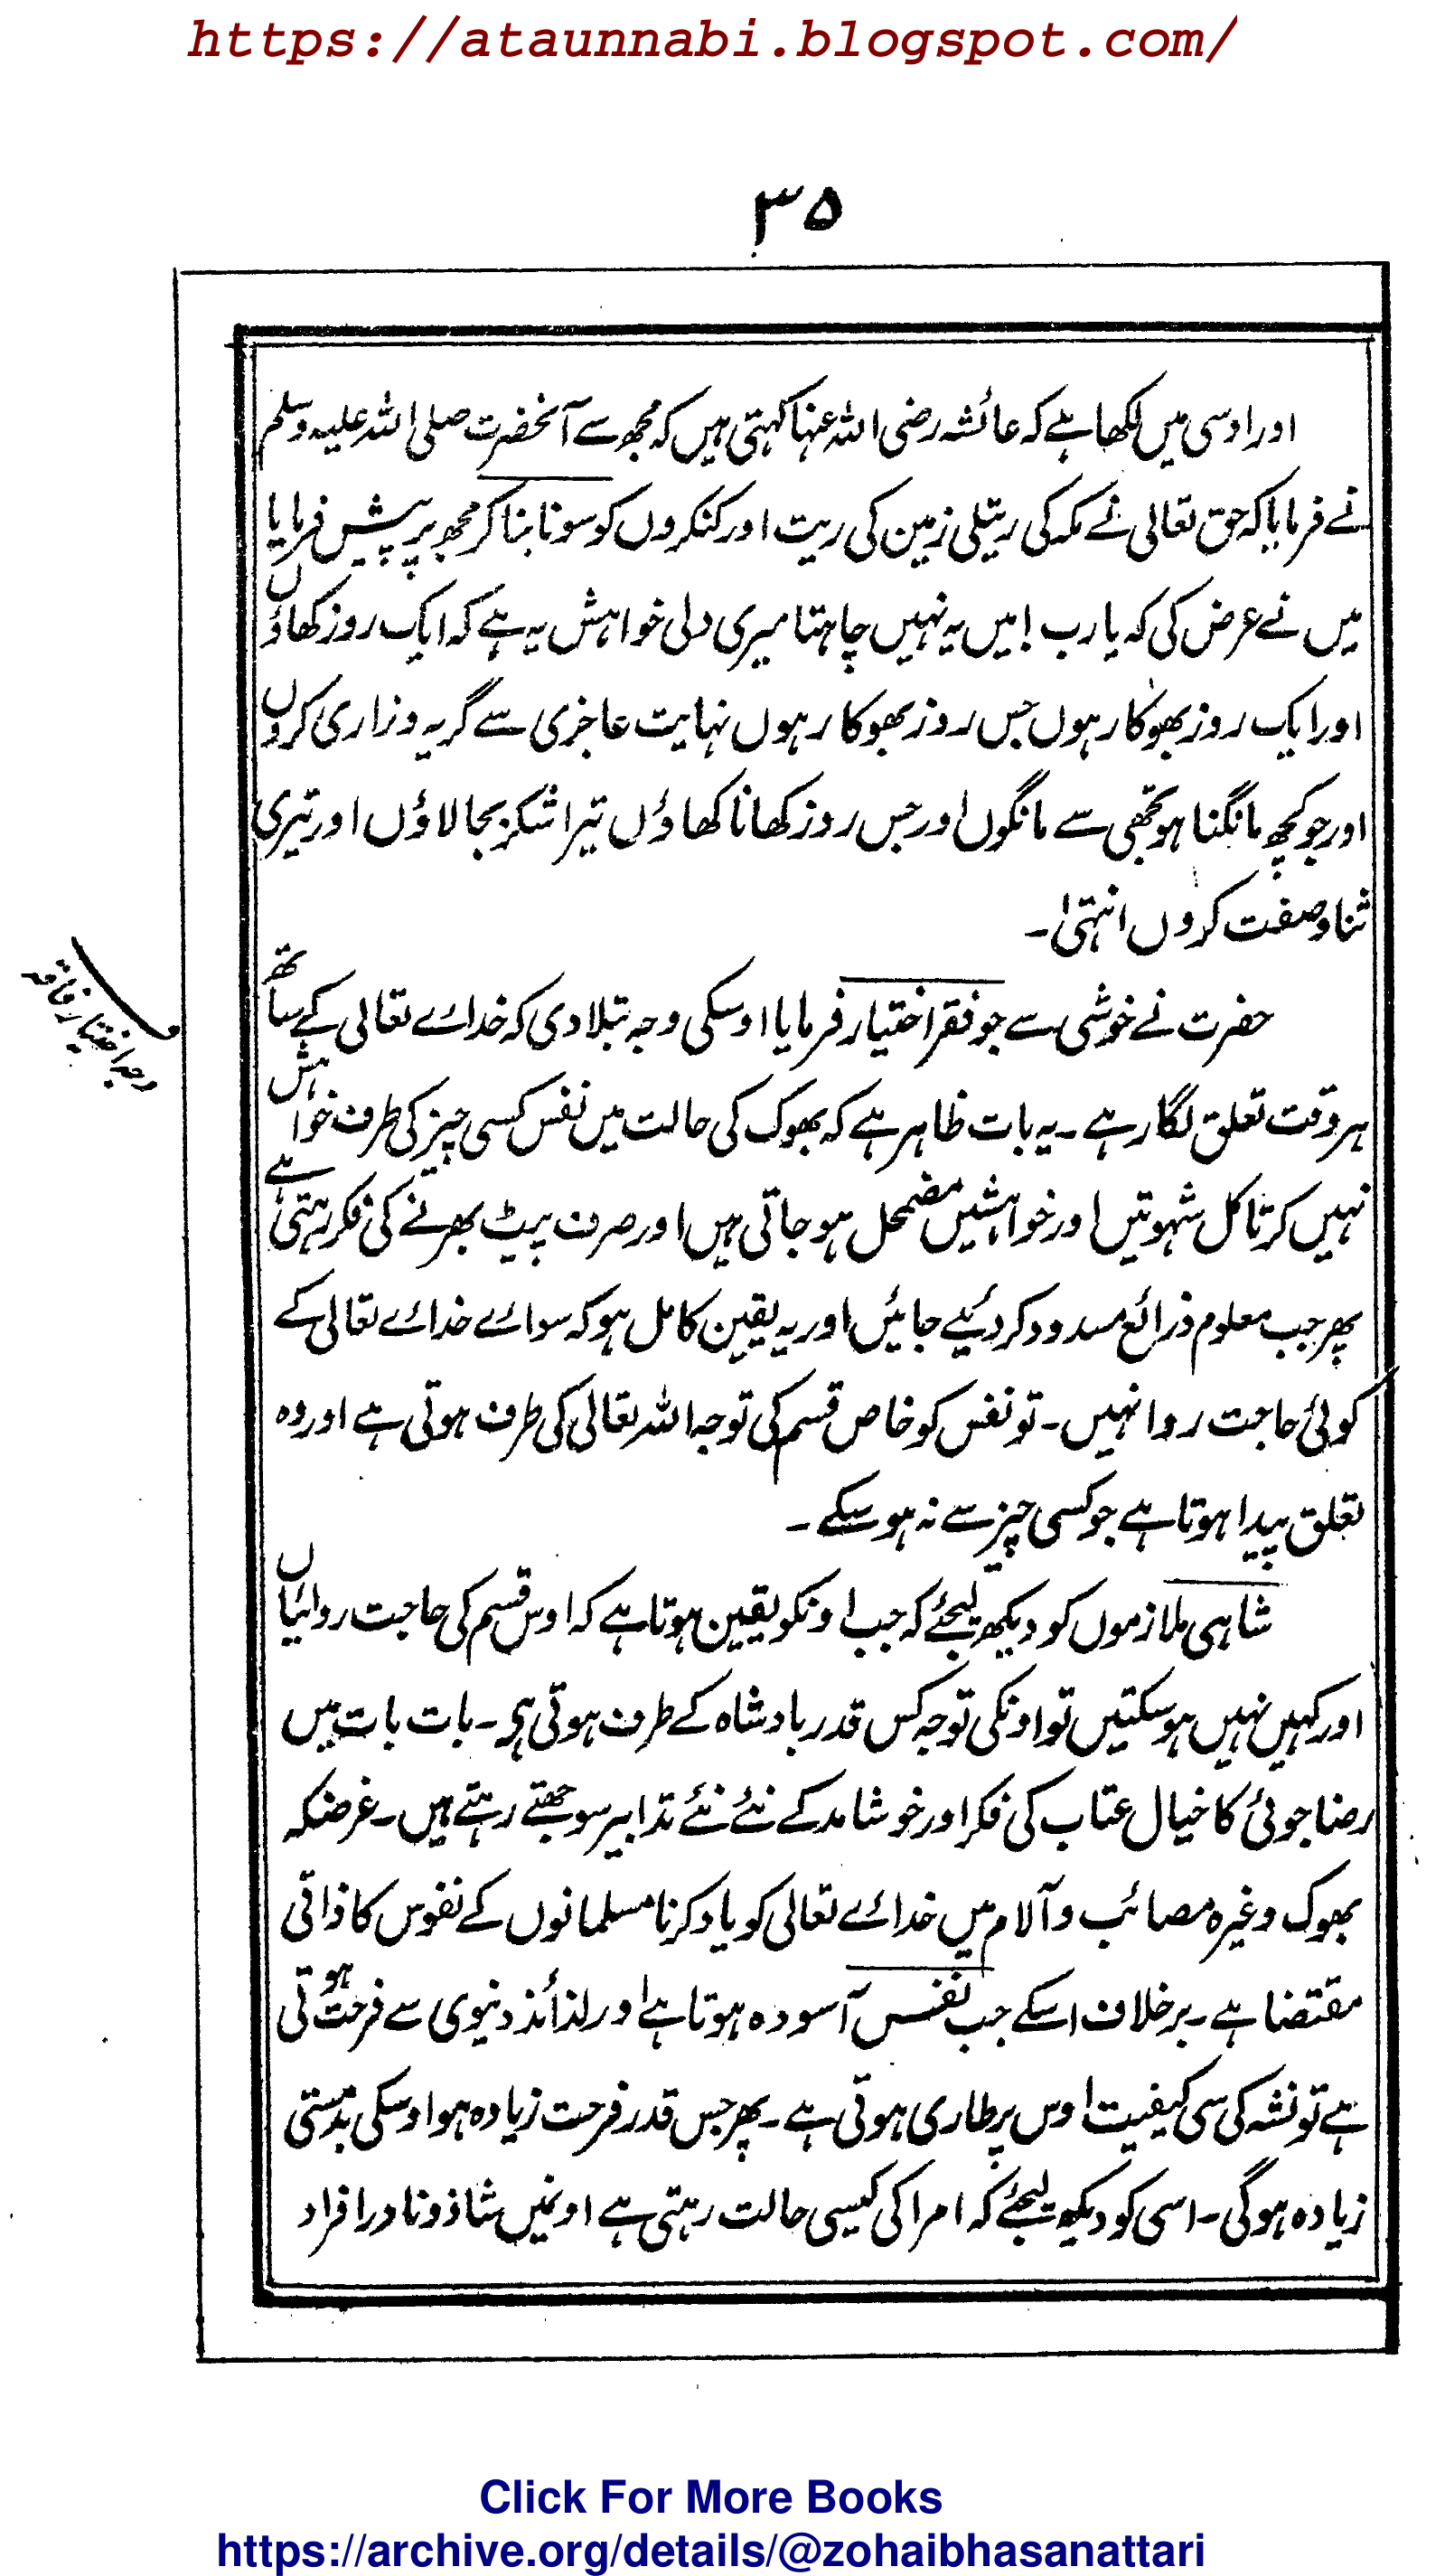 https://ataunnabi.blogspot.com/
۳۵
اور اوسی میں لکھا ہے کہ عائشہ رضی اللہ عنہا کہتی ہیں کہ مجھ سے آنحضرت صلی اللہ علیہ وسلم
نے فرمایا کہ حق تعالی نے مکہ کی ریتلی زمین کی ریت اور کنکروں کو سونا بنا کر مجھ پر پیش فرمایا
میں نے عرض کی کہ یا رب ! میں یہ نہیں چاہتا میری دلی خواہش یہ ہے کہ ایک روز کھاؤں
اور ایک روز بھوکا رہوں جس روز بھوکا رہوں نہایت عاجزی سے گریہ و زاری کروں
اور جو کچھ مانگنا ہو تجھی سے مانگوں اور جس روز کھانا کھاؤں تیرا شکر بجا لاؤں اور تیری
ثنا و صفت کروں انتہیٰ۔
حضرت نے خوشی سے جو فقر اختیار فرمایا اوسکی وجہ بتلا دی کہ خداے تعالی کے ساتھ
وجہ اختیار فاقہ
ہر وقت تعلق لگا رہے ۔ یہ بات ظاہر ہے کہ بھوک کی حالت میں نفس کسی چیز کی طرف خواہش
نہیں کرتا کل شہوتیں اور خواہشیں مضمحل ہو جاتی ہیں اور صرف پیٹ بھرنے کی فکر رہتی ہے
پھر جب معلوم ذرائع مسدود کر دئیے جائیں اور یہ یقین کامل ہو کہ سواے خداے تعالی کے
کوئی حاجت روا نہیں ۔ تو نفس کو خاص قسم کی توجہ اللہ تعالی کی طرف ہوتی ہے اور وہ
تعلق پیدا ہوتا ہے جو کسی چیز سے نہ ہو سکے ۔
شاہی ملازموں کو دیکھ لیجئے کہ جب اونکو یقین ہوتا ہے کہ اوس قسم کی حاجت روائیاں
اور کہیں نہیں ہو سکتیں تو اونکی توجہ کس قدر بادشاہ کے طرف ہوتی ہے ۔ بات بات میں
رضا جوئی کا خیال عتاب کی فکر اور خوشامد کے نئے نئے تدابیر سوجھتے رہتے ہیں ۔ غرضکہ
بھوک وغیرہ مصائب و آلام میں خداے تعالی کو یاد کرنا مسلمانوں کے نفوس کا ذاتی
مقتضا ہے ۔ برخلاف اسکے جب نفس آسودہ ہوتا ہے اور لذائذ دنیوی سے فرحت ہوتی
ہے تو نشہ کی سی کیفیت اوس پر طاری ہوتی ہے ۔ پھر جس قدر فرحت زیادہ ہو اوسکی بدمستی
زیادہ ہوگی ۔ اسی کو دیکھ لیجئے کہ امرا کی کیسی حالت رہتی ہے اونمیں شاذ و نادر افراد
Click For More Books
https://archive.org/details/@zohaibhasanattari